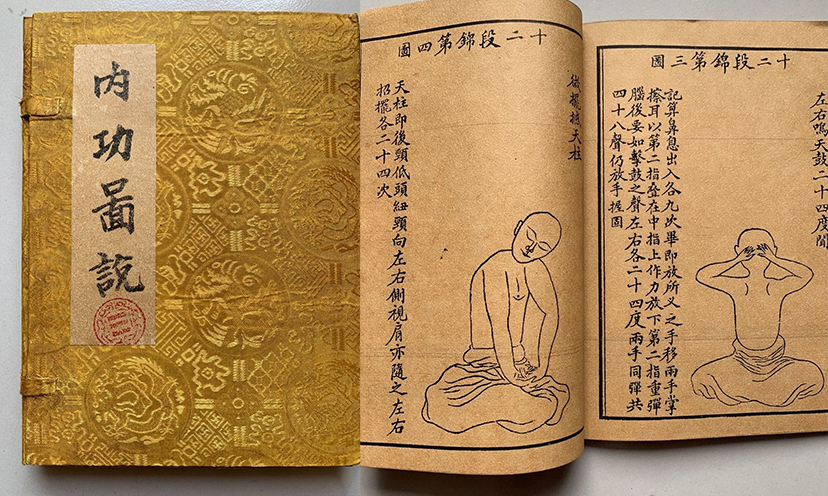 内功啚說
十二段錦第三圖
左右鳴天鼓二十四度聞
記算鼻息出入各九次畢即放所叉之手移兩手掌
擦耳以第二指疊在中指上作力放下第二指重彈
腦後要如擊鼓之聲左右各二十四度兩手同彈共
四十八聲仍放手握固
十二段錦第四圖
微擺撼天柱
天柱即後頸低頭紐頸向左右側視肩亦隨之左右
招擺各二十四次